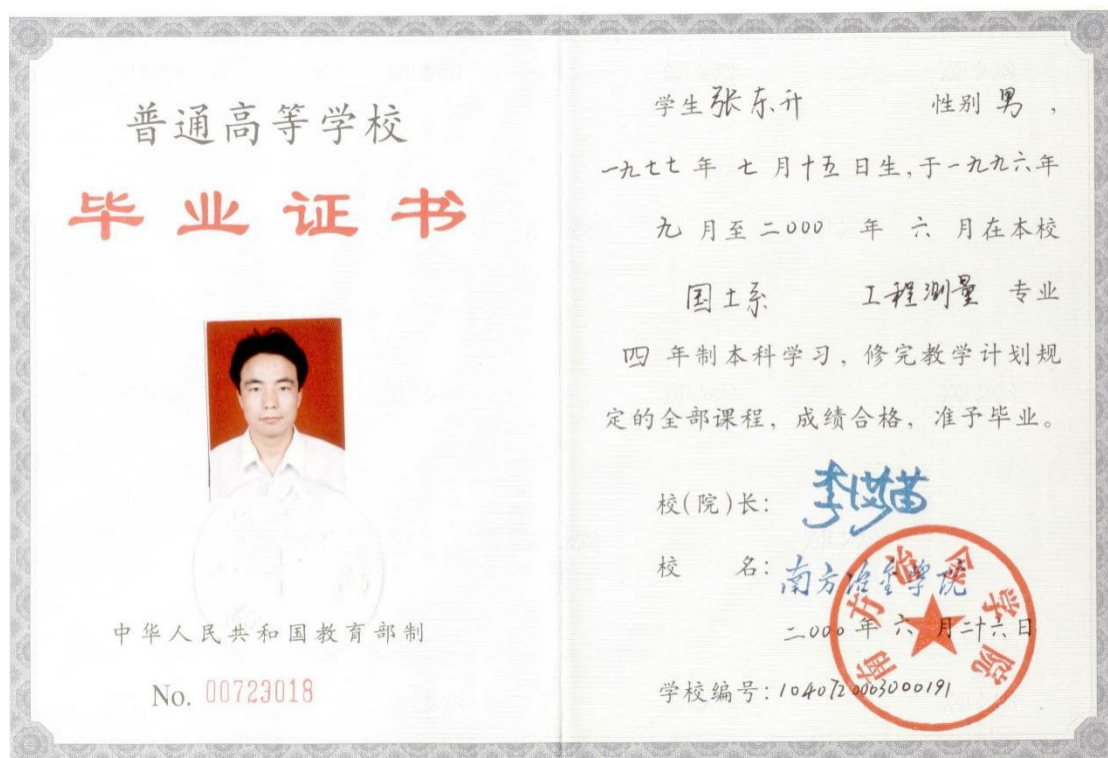 普通高等学校
毕业证书
中华人民共和国教育部制
No. 00723018
学生张东升 性别男，
一九七七年七月十五日生，于一九九六年
九月至二000年六月在本校
国土系 工程测量专业
四年制本科学习，修完教学计划规
定的全部课程，成绩合格，准予毕业。
校(院)长：
校 名：南方冶金学院
二000年六月二十六日
学校编号：1040720003000191
南方冶金学院